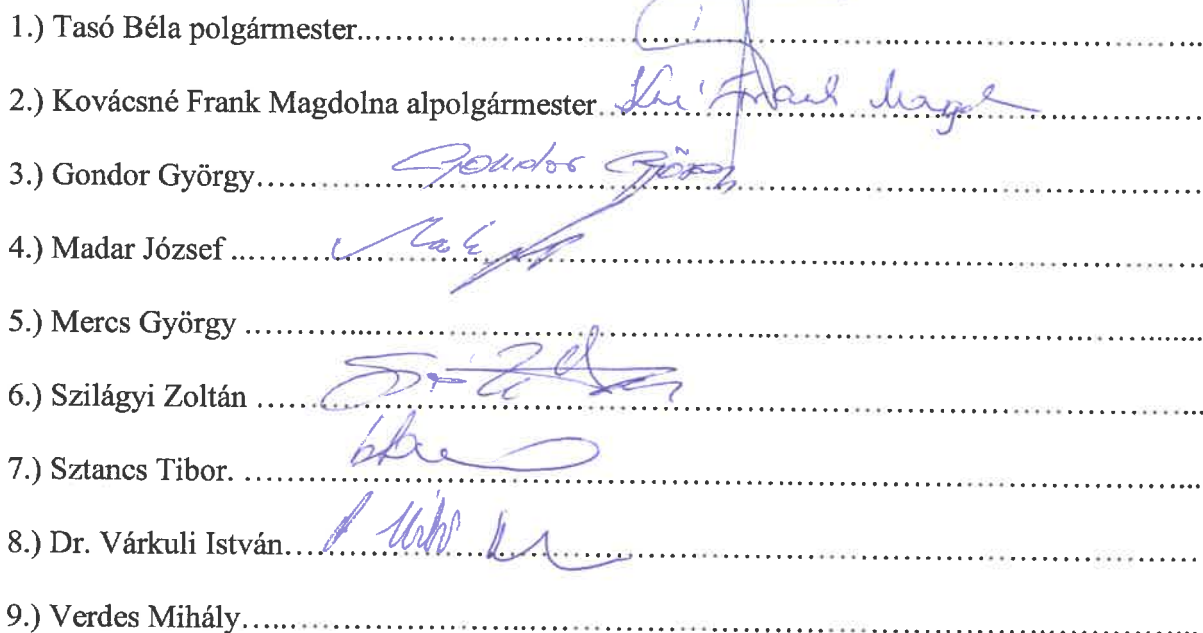 1.) Tasó Béla polgármester................................................
2.) Kovácsné Frank Magdolna alpolgármester. Kné Frank Magd
3.) Gondor György................ Gondor György ................................
4.) Madar József ................................................
5.) Mercs György ................................................
6.) Szilágyi Zoltán ................................................
7.) Sztancs Tibor. ................................................
8.) Dr. Várkuli István................................................
9.) Verdes Mihály................................................